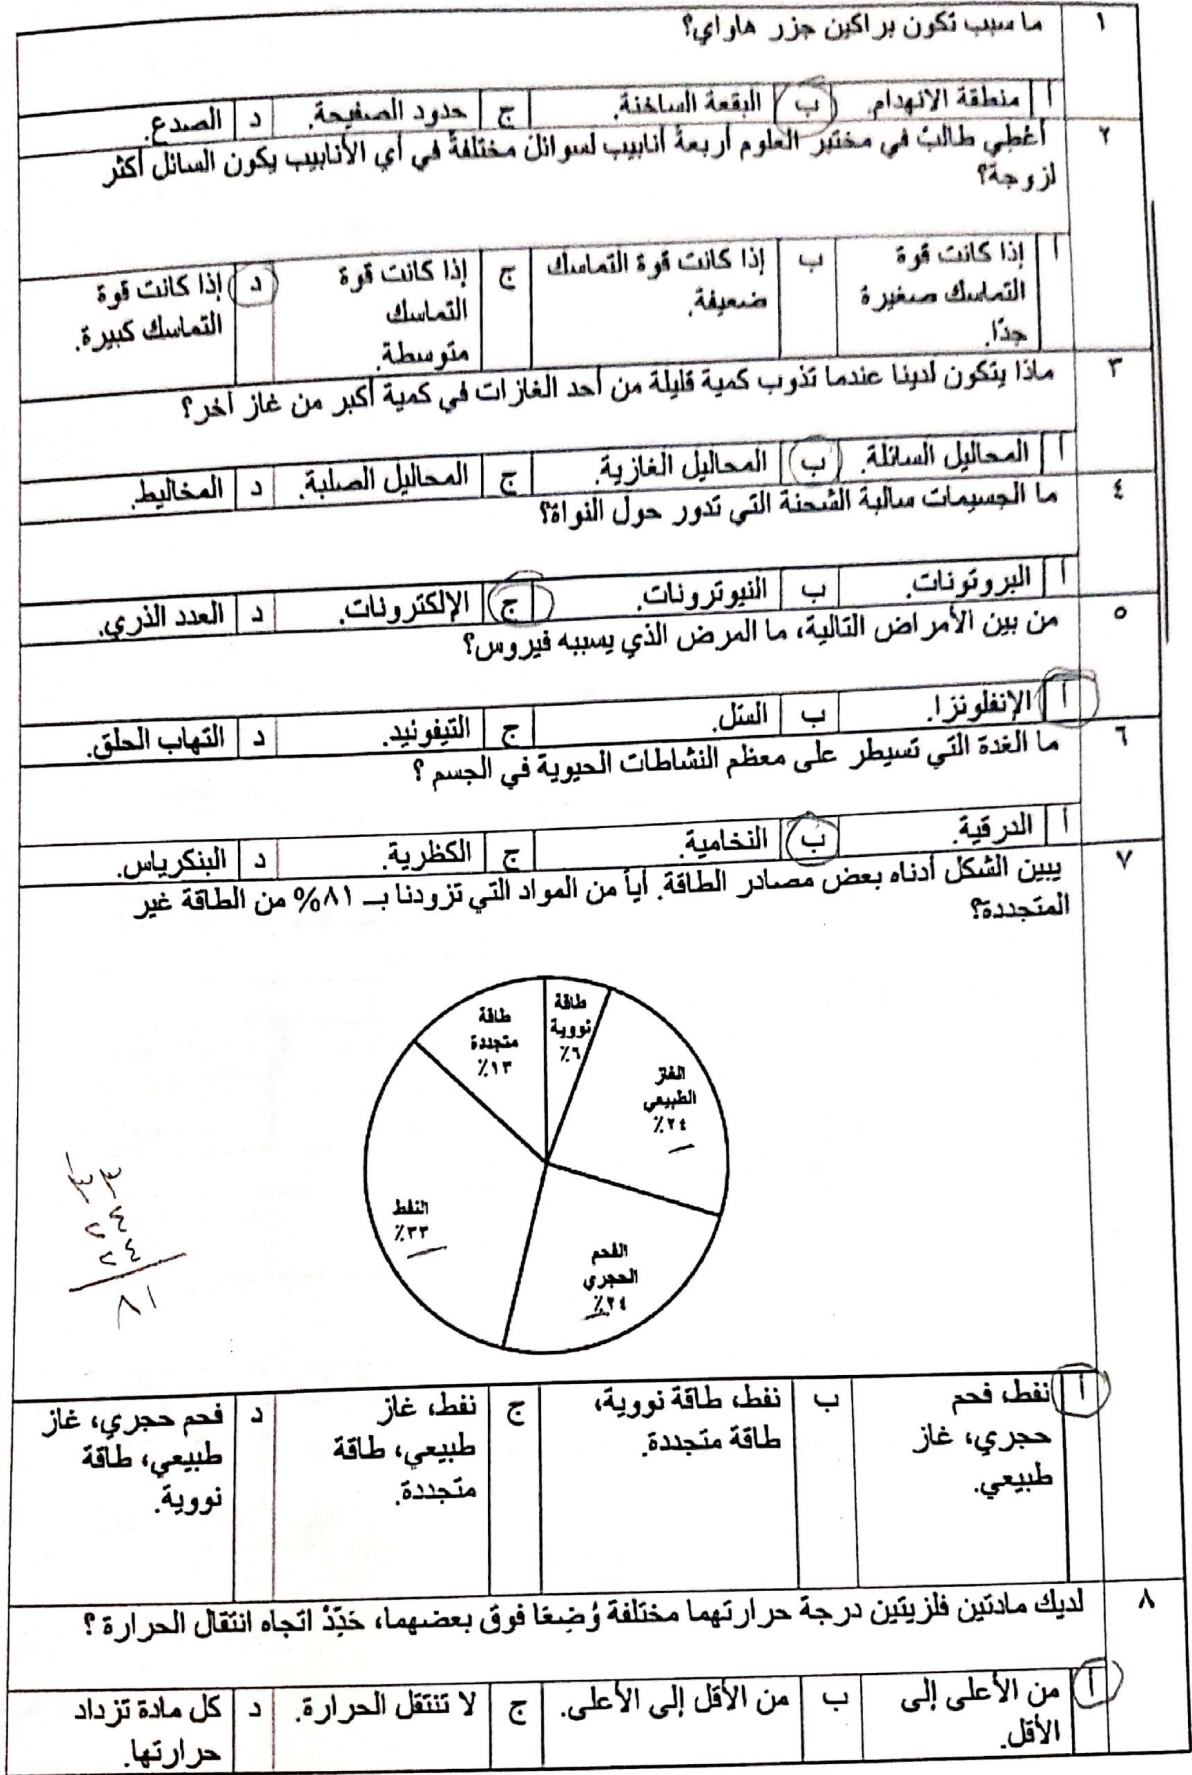 ١ ما سبب تكون براكين جزر هاواي؟
أ منطقة الانهدام. ب البقعة الساخنة. ج حدود الصفيحة. د الصدع.
٢ أعْطِي طالبٌ في مختبر العلوم أربعة أنابيب لسوائل مختلفة في أي الأنابيب يكون السائل أكثر
لزوجة؟
أ إذا كانت قوة
التماسك صغيرة
جدًا.
ب إذا كانت قوة التماسك
ضعيفة.
ج إذا كانت قوة
التماسك
متوسطة.
د إذا كانت قوة
التماسك كبيرة.
٣ ماذا يتكون لدينا عندما تذوب كمية قليلة من أحد الغازات في كمية أكبر من غاز آخر؟
أ المحاليل السائلة. ب المحاليل الغازية. ج المحاليل الصلبة. د المخاليط.
٤ ما الجسيمات سالبة الشحنة التي تدور حول النواة؟
أ البروتونات. ب النيوترونات. ج الإلكترونات. د العدد الذري.
٥ من بين الأمراض التالية، ما المرض الذي يسببه فيروس؟
أ الإنفلونزا. ب السّل. ج التيفوئيد. د التهاب الحلق.
٦ ما الغدة التي تسيطر على معظم النشاطات الحيوية في الجسم ؟
أ الدرقية. ب النخامية. ج الكظرية. د البنكرياس.
٧ يبين الشكل أدناه بعض مصادر الطاقة. أياً من المواد التي تزودنا بـ ٨١% من الطاقة غير
المتجددة؟
طاقة
نووية
٦٪
طاقة
متجددة
١٣٪
الغاز
الطبيعي
٢٤٪
النفط
٣٣٪
الفحم
الحجري
٢٤٪
٣٣
٢٤
٢٤
٨١
أ نفط، فحم
حجري، غاز
طبيعي.
ب نفط، طاقة نووية،
طاقة متجددة.
ج نفط، غاز
طبيعي، طاقة
متجددة.
د فحم حجري، غاز
طبيعي، طاقة
نووية.
٨ لديك مادتين فلزيتين درجة حرارتهما مختلفة وُضِعَا فوق بعضهما، حَدِّدْ اتجاه انتقال الحرارة ؟
أ من الأعلى إلى
الأقل.
ب من الأقل إلى الأعلى.
ج لا تنتقل الحرارة.
د كل مادة تزداد
حرارتها.